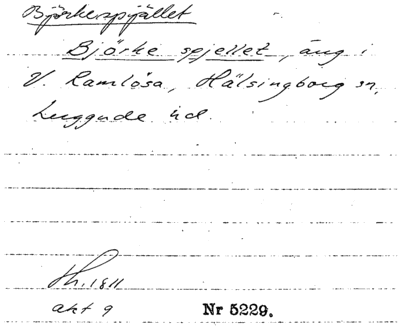 Björkespjället
Björke spjellet, äng i
V. Ramlösa, Hälsingborg sn,
Luggude hd.
Sk. 1811
akt 9 Nr 5229.